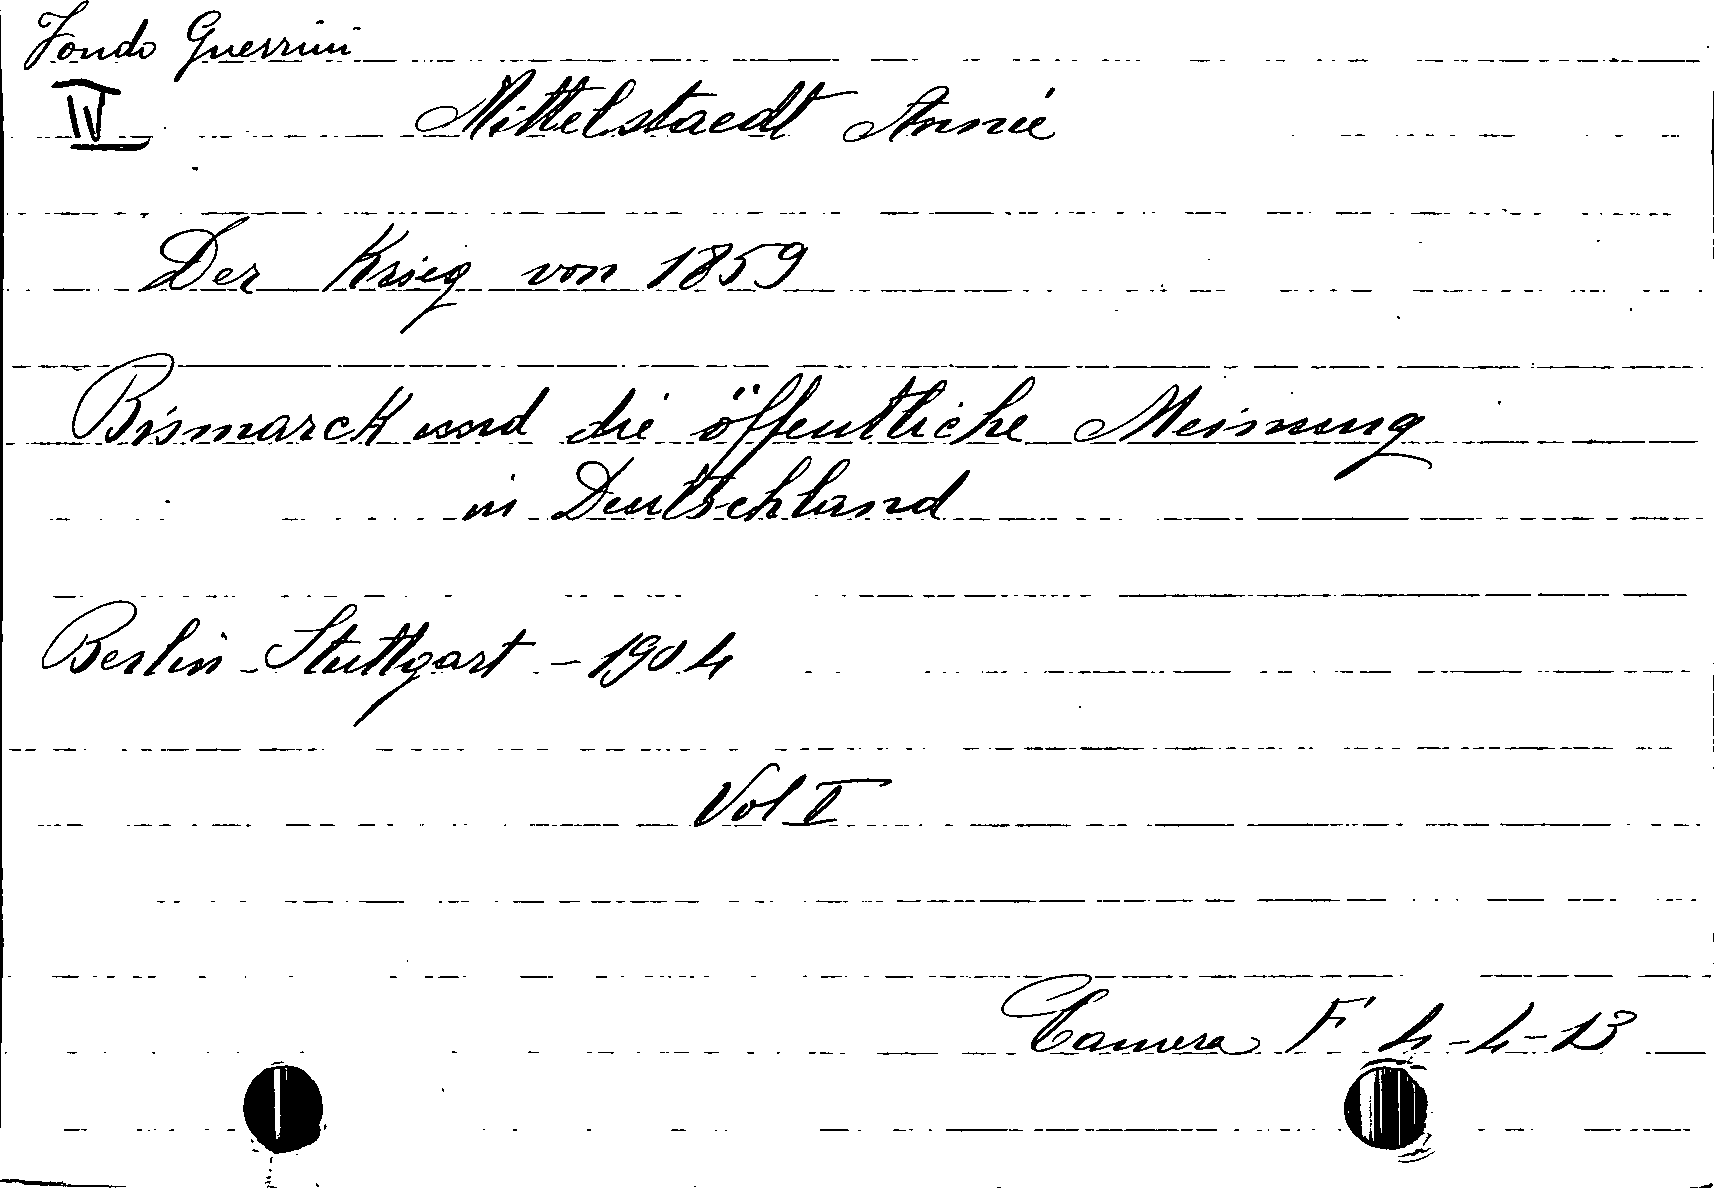 Fondo Guerrini
IV
Mittelstaedt Annie
Der Krieg von 1859
Bismarck und die öffentliche Meinung
in Deutschland
Berlin - Stuttgart - 1904
Vol I
Camera F 4-4-13